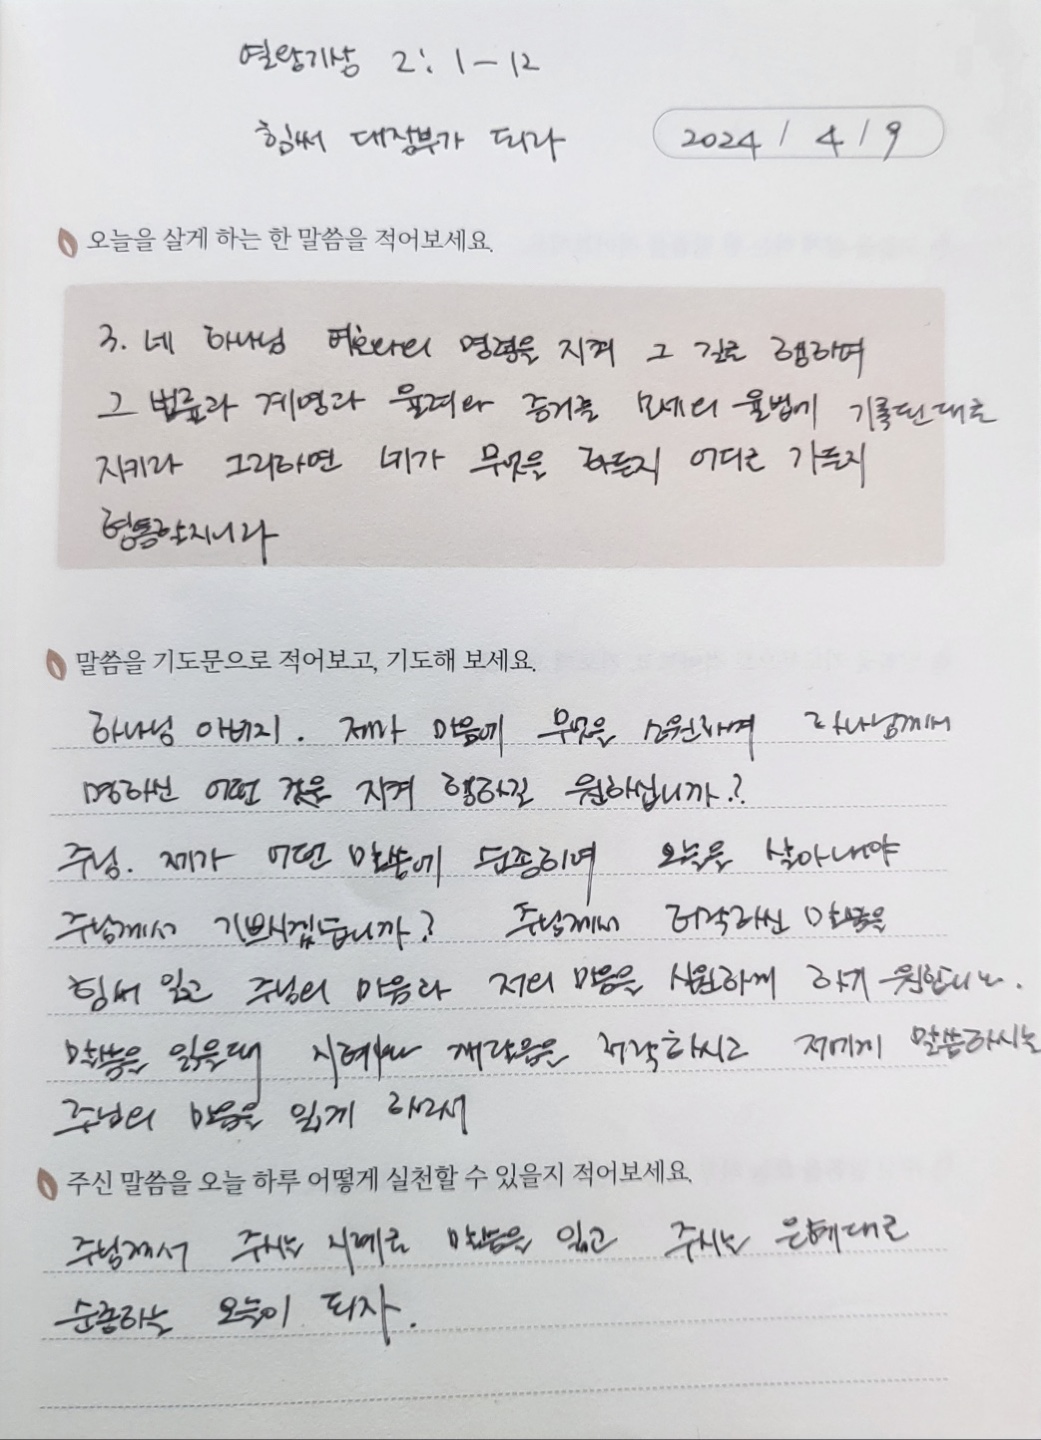 열왕기상 2:1-12
힘써 대장부가 되라
2024/4/9
오늘을 살게 하는 한 말씀을 적어보세요.
3. 네 하나님 여호와의 명령을 지켜 그 길로 행하여
그 법률과 계명과 율례와 증거를 모세의 율법에 기록된대로
지키라 그리하면 네가 무엇을 하든지 어디로 가든지
형통할지니라
말씀을 기도문으로 적어보고, 기도해 보세요.
하나님 아버지. 제가 마음에 무엇을 소원하며 하나님께서
명하신 어떤 것을 지켜 행하길 원하십니까?
주님. 제가 어떤 말씀에 순종하며 오늘을 살아내야
주님께서 기쁘시겠습니까? 주님께서 허락하신 말씀을
힘써 읽고 주님의 마음과 저의 마음을 시원하게 하기 원합니다.
말씀을 읽을때 지혜와 깨달음을 허락하시고 저에게 말씀하시는
주님의 마음을 읽게 하소서
주신 말씀을 오늘 하루 어떻게 실천할 수 있을지 적어보세요.
주님께서 주시는 지혜로 말씀을 읽고 주시는 은혜대로
순종하는 오늘이 되자.